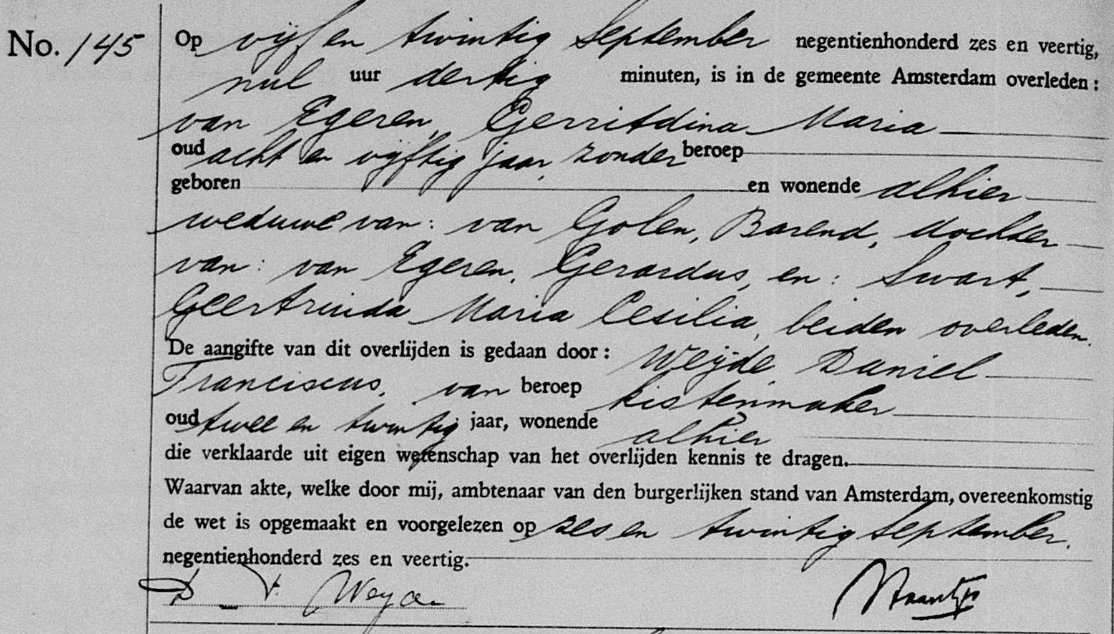 No. 145 Op vijf en twintig September negentienhonderd zes en veertig,
nul uur dertig minuten, is in de gemeente Amsterdam overleden:
van Egeren, Gerritdina Maria
oud acht en vijftig jaar, zonder beroep
geboren en wonende alhier
weduwe van: van Golen, Barend, dochter
van: van Egeren, Gerardus, en: Swart,
Geertruida Maria Cesilia, beiden overleden.
De aangifte van dit overlijden is gedaan door: Weijde Daniel
Franciscus, van beroep kistenmaker
oud twee en twintig jaar, wonende alhier
die verklaarde uit eigen wetenschap van het overlijden kennis te dragen.
Waarvan akte, welke door mij, ambtenaar van den burgerlijken stand van Amsterdam, overeenkomstig
de wet is opgemaakt en voorgelezen op zes en twintig September.
negentienhonderd zes en veertig.